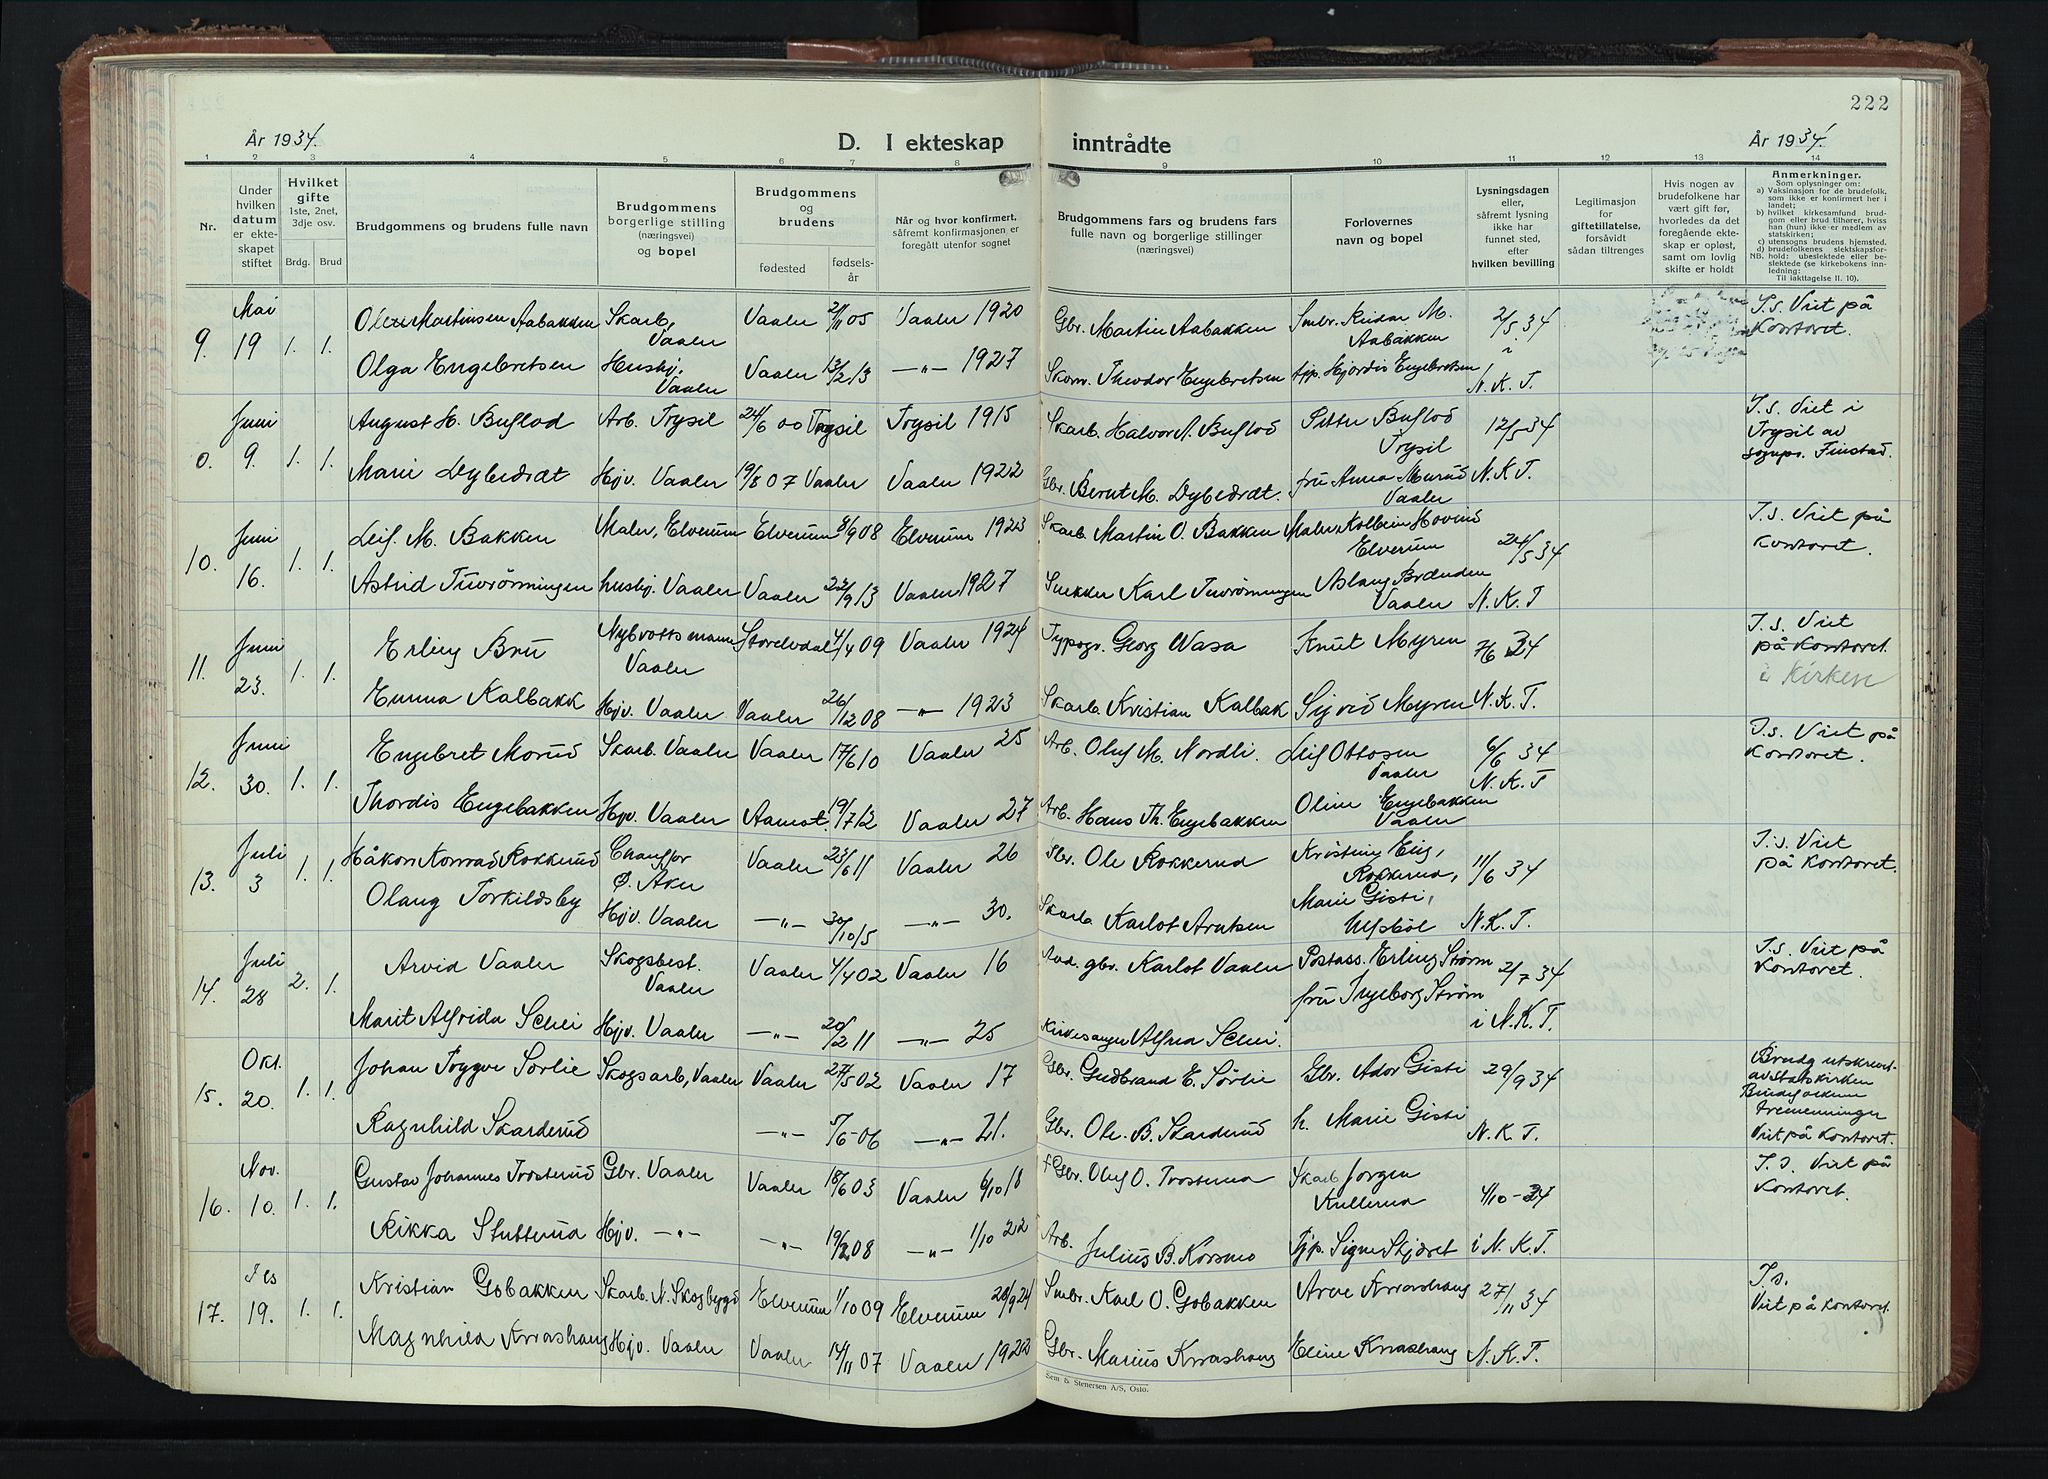 222
År 1934. D. I ekteskap inntrådte År 1934.
1 2 3 4 5 6 7 8 9 10 11 12 13 14
Nr.
Under hvilken datum er ekteskapet stiftet
Hvilket gifte 1ste, 2net, 3dje osv.
Brdg. Brud
Brudgommens og brudens fulle navn
Brudgommens borgerlige stilling (næringsvei) og bopel
Brudgommens og brudens
fødested fødselsår
Når og hvor konfirmert, såfremt konfirmasjonen er foregått utenfor sognet
Brudgommens fars og brudens fars fulle navn og borgerlige stillinger (næringsvei)
Forlovernes navn og bopel
Lysningsdagen eller, såfremt lysning ikke har funnet sted, efter hvilken bevilling
Legitimasjon for giftetillatelse, forsåvidt sådan tiltrenges
Hvis nogen av brudefolkene har vært gift før, hvorledes da det foregående ekteskap er opløst, samt om lovlig skifte er holdt
Anmerkninger.
Som oplysninger om:
a) Vaksinasjon for de brudefolk, som ikke er konfirmert her i landet;
b) hvilket kirkesamfund brudgom eller brud tilhører, hviss han (hun) ikke er medlem av statskirken;
c) utensogns brudens hjemsted.
d) brudefolkenes slektskapsforhold: ubeslektede eller beslektede (se kirkebokens innledning:
NB.
Til iakttagelse II. 10).
9. Mai 19 1. 1. Martinsen Aabakken Skarb. Vaaler Vaaler 05 Vaaler 1920 Gbr. Martin Aabakken Smbr. Reidar M. Aabakken 2/5 34 T.s. Viet på Kontoret.
Olga Engebretsen Husbj. Vaaler Vaaler 13/2 13 —"— 1927 Skom. Theodor Engebretsen Hjordis Engebretsen i N. K. T.
0. Juni 9. 1. 1. August H. Buflod Arb. Trysil 24/6 00 Trysil Trysil 1915 Skarb. Halvor Buflod Buflod Trysil 12/5 34 T.s. Viet i Trysil av sognpr. Finstad.
Marie Dybedrdt Hjv. Vaaler 19/8 07 Vaaler Vaaler 1922 Gbr. Bernt M. Dybedrdt. fru Anna Vaaler N.K.T.
10. Juni 16. 1. 1. Leif. M. Bakken Maler, Elverum Elverum 8/9 08 Elverum 1923 Skarb. Martin O. Bakken Maler Kolbein Hovind Elverum 24/5 34 T.s. Viet på Kontoret.
Astrid Husbj. Vaaler Vaaler 22/9 13 Vaaler 1927 Snekker Karl Aslaug Brænden Vaaler N.K.T
11. Juni 23. 1. 1. Erling Bru Nybrottsmann Vaaler Storelvdal 4/4 09 Vaaler 1924 Typogr. Georg Wasa Knut Myren 7/6 34 T.s. Viet på Kontoret. i Kirken
Emma Kalbakk Hjv. Vaaler Vaaler 26/12 08 —"— 1923 Skarb. Kristian Kalbak Sigrid Myren N.K.T.
12. Juni 30. 1. 1. Engebret Morud Skarb. Vaaler Vaaler 17/6 10 Vaaler 25 Arb. Oluf M. Nordli. Leif Ottosen Vaaler 6/6 34 N.K.T T.s. Viet på Kontoret.
Thordis Engebakken Hjv. Vaaler Aamot. 19/7 12 Vaaler 27 Arb. Hans Th. Engebakken Oline Engebakken Vaaler
13. Juli 3 1. 1. Håkon Konrad Rokkerud Chauffør Ø. Aker Vaaler 23/6 11 Vaaler 26 Gbr. Ole Rokkerud Kristine Eng, Rokkerud, 11/6 34 T.s. Viet på Kontoret.
Olaug Torkildsby Hjv. Vaaler —"— 30/10 15 —"— 30. Skarb Karlot Arntsen Marie Gisti, Ulfsbøl N.K.T.
14. Juli 28 2. 1. Arvid Vaaler Skogsbest. Vaaler Vaaler 4/4 02 Vaaler 16 gbr. Karlot Vaaler Postass. Erling Strøm 2/7 34 T.s. Viet på Kontoret.
Marit Alfrida Schei Hjv. Vaaler —"— 20/2 11 —"— 25 Kirkesanger Alfred Schei. fru Ingeborg Strøm i N.K.T.
15. Okt. 20. 1. 1. Johan Trygve Sørlie Skogsarb, Vaaler Vaaler 27/5 02 Vaaler 17 Gbr. Gudbrand E. Sørlie Gbr. Ador Gisti 29/9 34 Brudg utskrevet av statskirken Viet på Kontoret.
Ragnhild Skarderud —"— 5/6-06 —"— 21. Gbr. Ole. B. Skarderud h. Marie Gisti N.K.T.
16. Nov. 10. 1. 1. Gustav Johannes Trosterud Gbr. Vaaler Vaaler 18/6 03 Vaaler 6/10 18 Gbr. Oluf O. Trosterud Skarb Jørgen Kullerud 4/10-34 T.s. Viet på Kontoret.
Rikka Stutterud Hjv. —"— —"— 19/2 08 —"— 1/10 22 Arb. Julius B. Korsmo Tjp. Signe Skjæret i N.K.T.
17. Des 19. 1. 1. Kristian Gobakken Skarb. N. Skogbygd Elverum 1/10 09 Elverum 28/9 24 Smbr. Karl O. Gobakken Arve Kvashaug 27/11 34 T.s. Viet på Kontoret.
Magnhild Kvashaug Hjv. Vaaler Vaaler 14/11 07 Vaaler 1922 Gbr. Marius Kvashaug Eline Kvashaug N.K.T.
Sem & Stenersen A/S, Oslo.